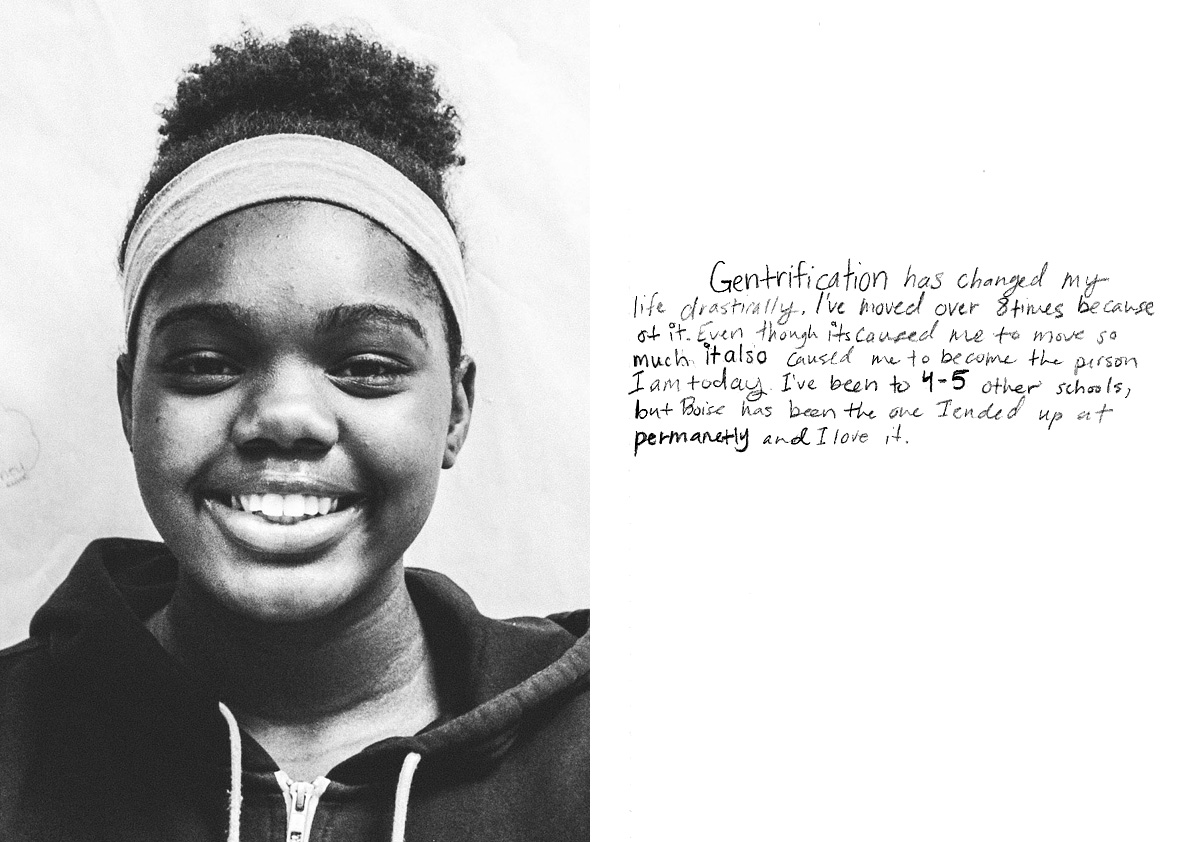 Gentrification has changed my
life drastically. I've moved over 8 times because
of it. Even though its caused me to move so
much it also caused me to become the person
I am today. I've been to 4-5 other schools,
but Boise has been the one I ended up at
permanetly and I love it.